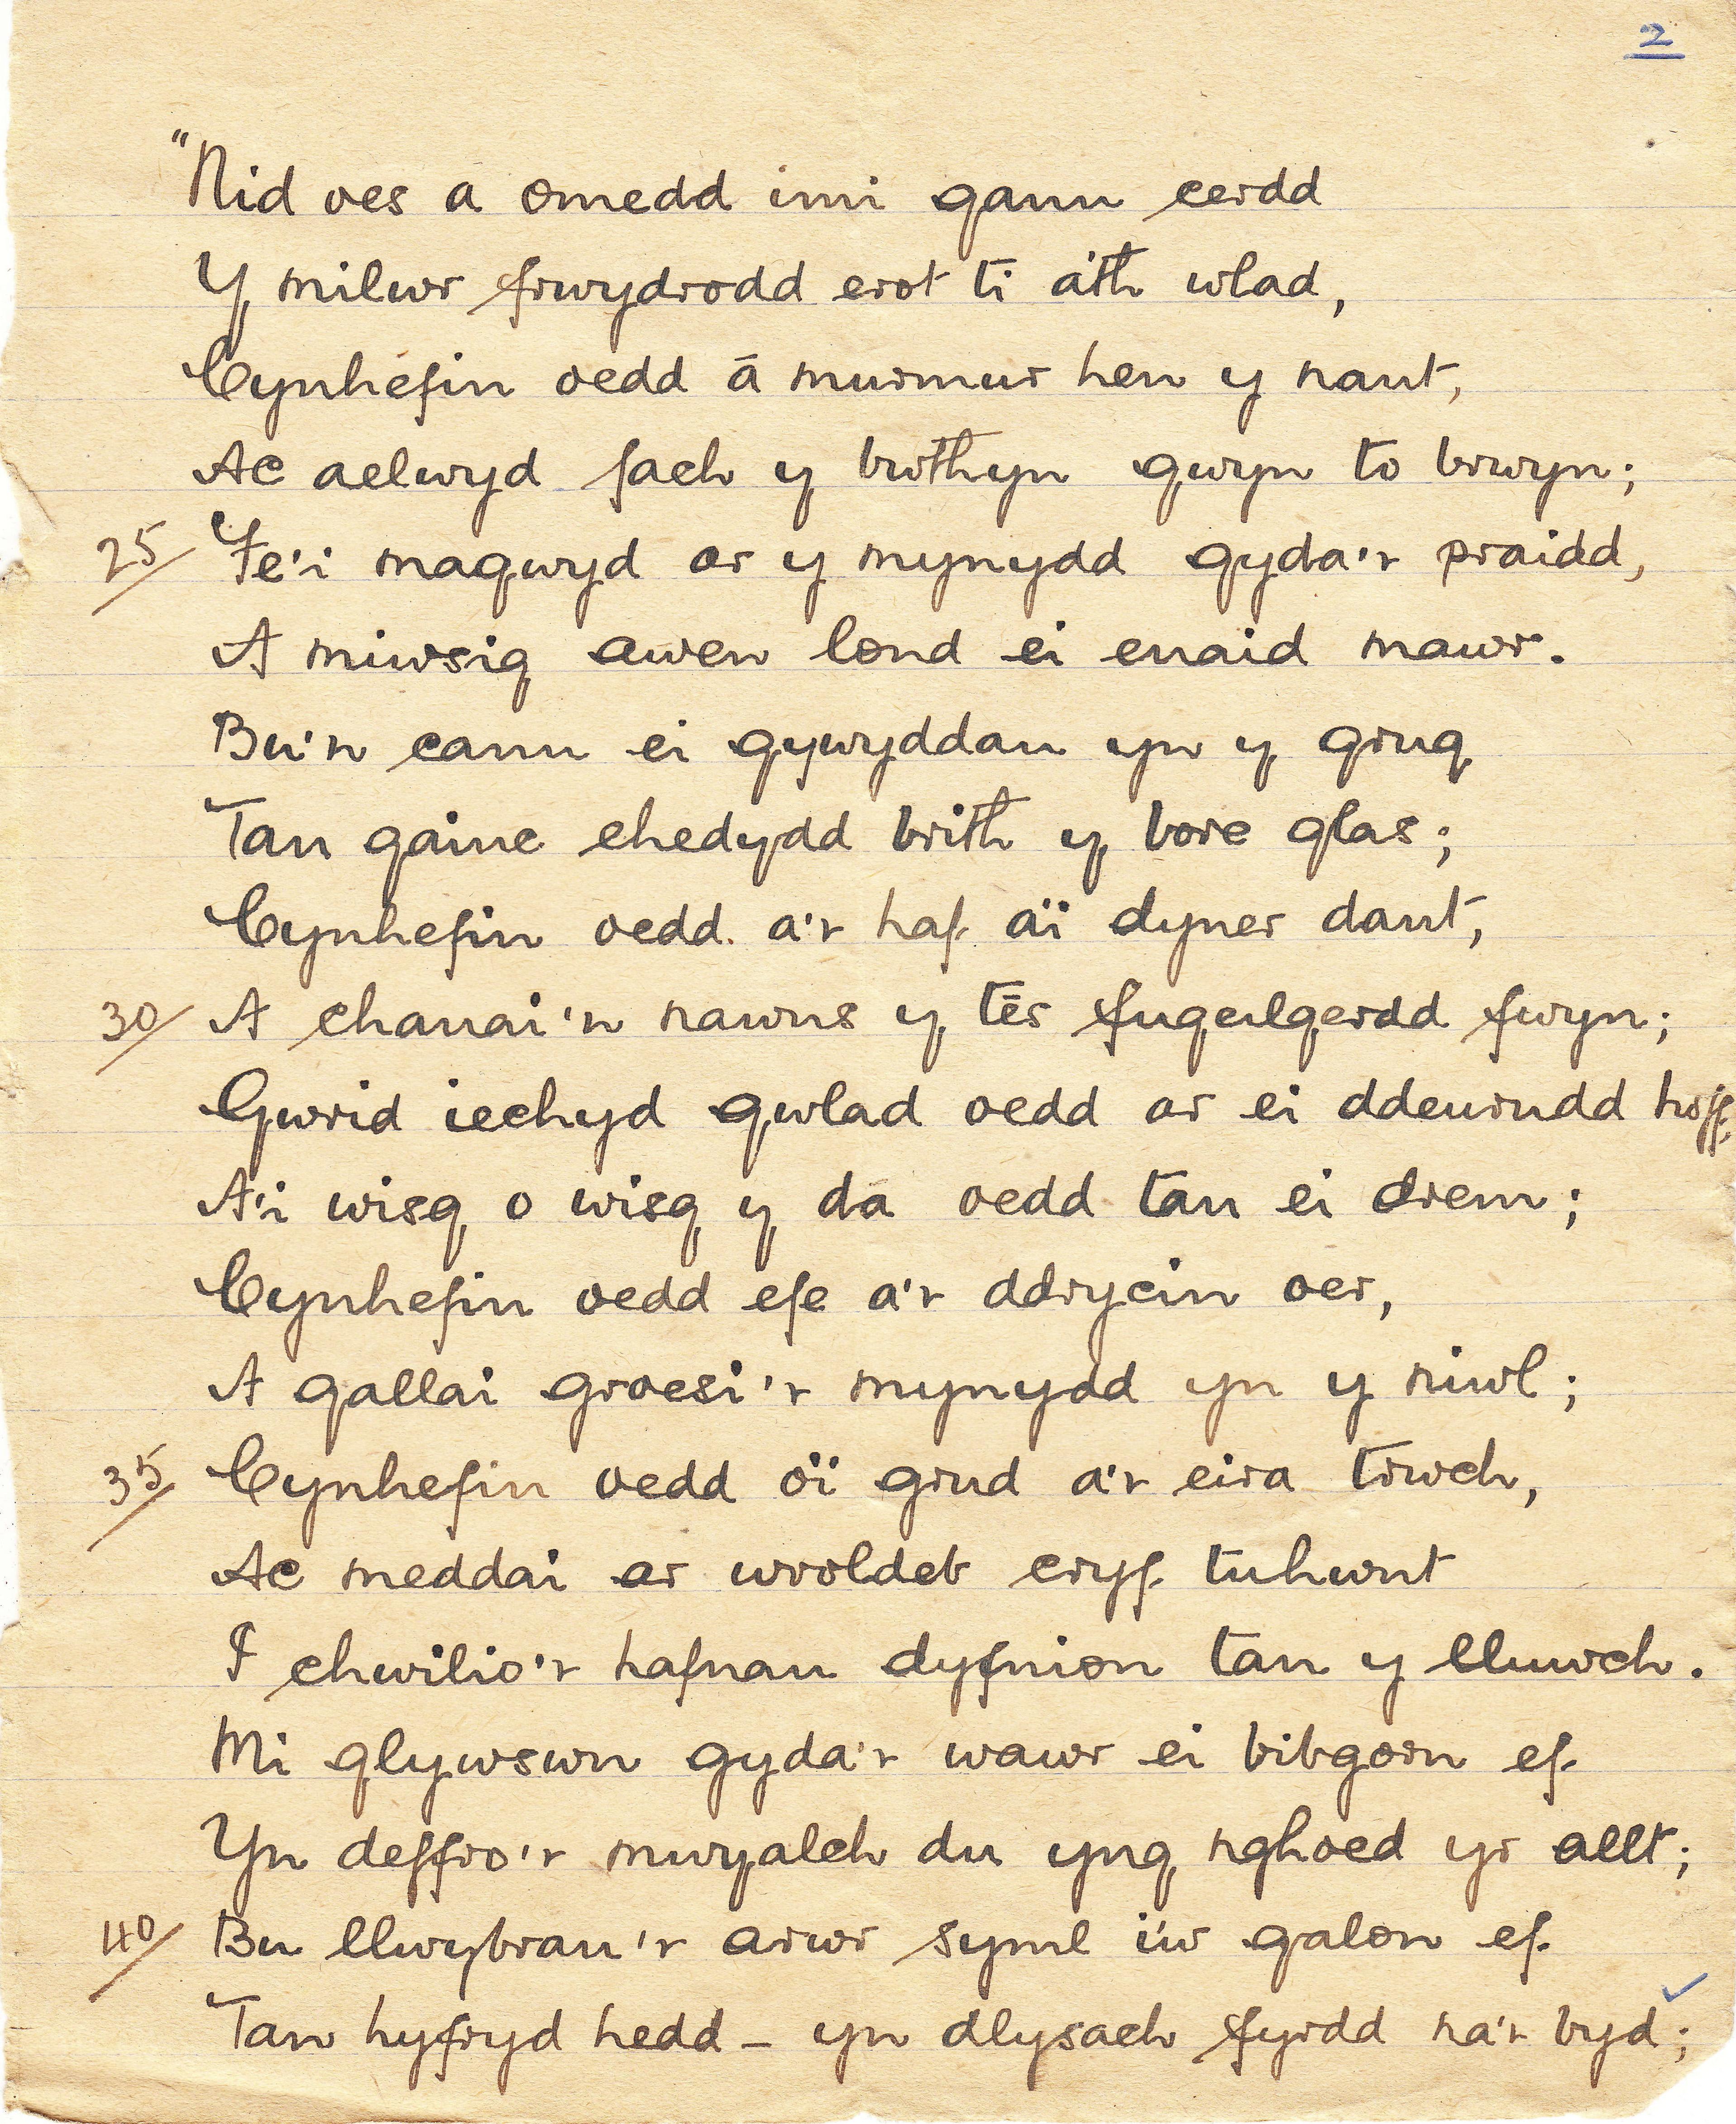 2
"Nid oes a omedd imi ganu cerdd
Y milwr frwydrodd erot ti a'th wlad,
Cynhefin oedd â murmur hen y nant,
Ac aelwyd fach y bwthyn gwyn to brwyn;
25/ Fe'i magwyd ar y mynydd gyda'r praidd,
A miwsig awen lond ei enaid mawr.
Bu'n canu ei gywyddau yn y grug
Tan gainc ehedydd brith y bore glas;
Cynhefin oedd a'r haf a'i dyner dant,
30/ A chanai'n nawns y tês fugeilgerdd fwyn;
Gwrid iechyd gwlad oedd ar ei ddeurudd hoff,
A'i wisg o wisg y da oedd tan ei drem;
Cynhefin oedd efe a'r ddrycin oer,
A gallai groesi'r mynydd yn y niwl;
35/ Cynhefin oedd o'i grud a'r eira trwch,
Ac meddai ar wroldeb cryf tuhwnt
I chwilio'r hafnau dyfnion tan y lluwch.
Mi glywswn gyda'r wawr ei bibgorn ef
Yn deffro'r mwyalch du yng nghoed yr allt;
40/ Bu llwybrau'r arwr syml i'w galon ef
Tan hyfryd hedd – yn dlysach ffyrdd na'r byd;